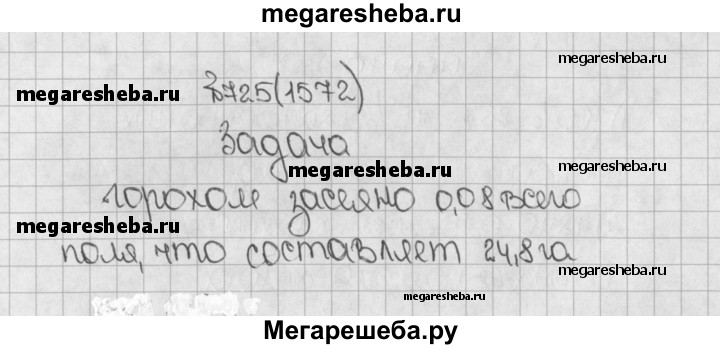 megaresheba.ru
megaresheba.ru
№725(1572)
megaresheba.ru
Задача
megaresheba.ru
megaresheba.ru
Горохом засеяно 0,08 всего
megaresheba.ru
поля, что составляет 24,8 га
megaresheba.ru
megaresheba.ru
Мегарешеба.ру